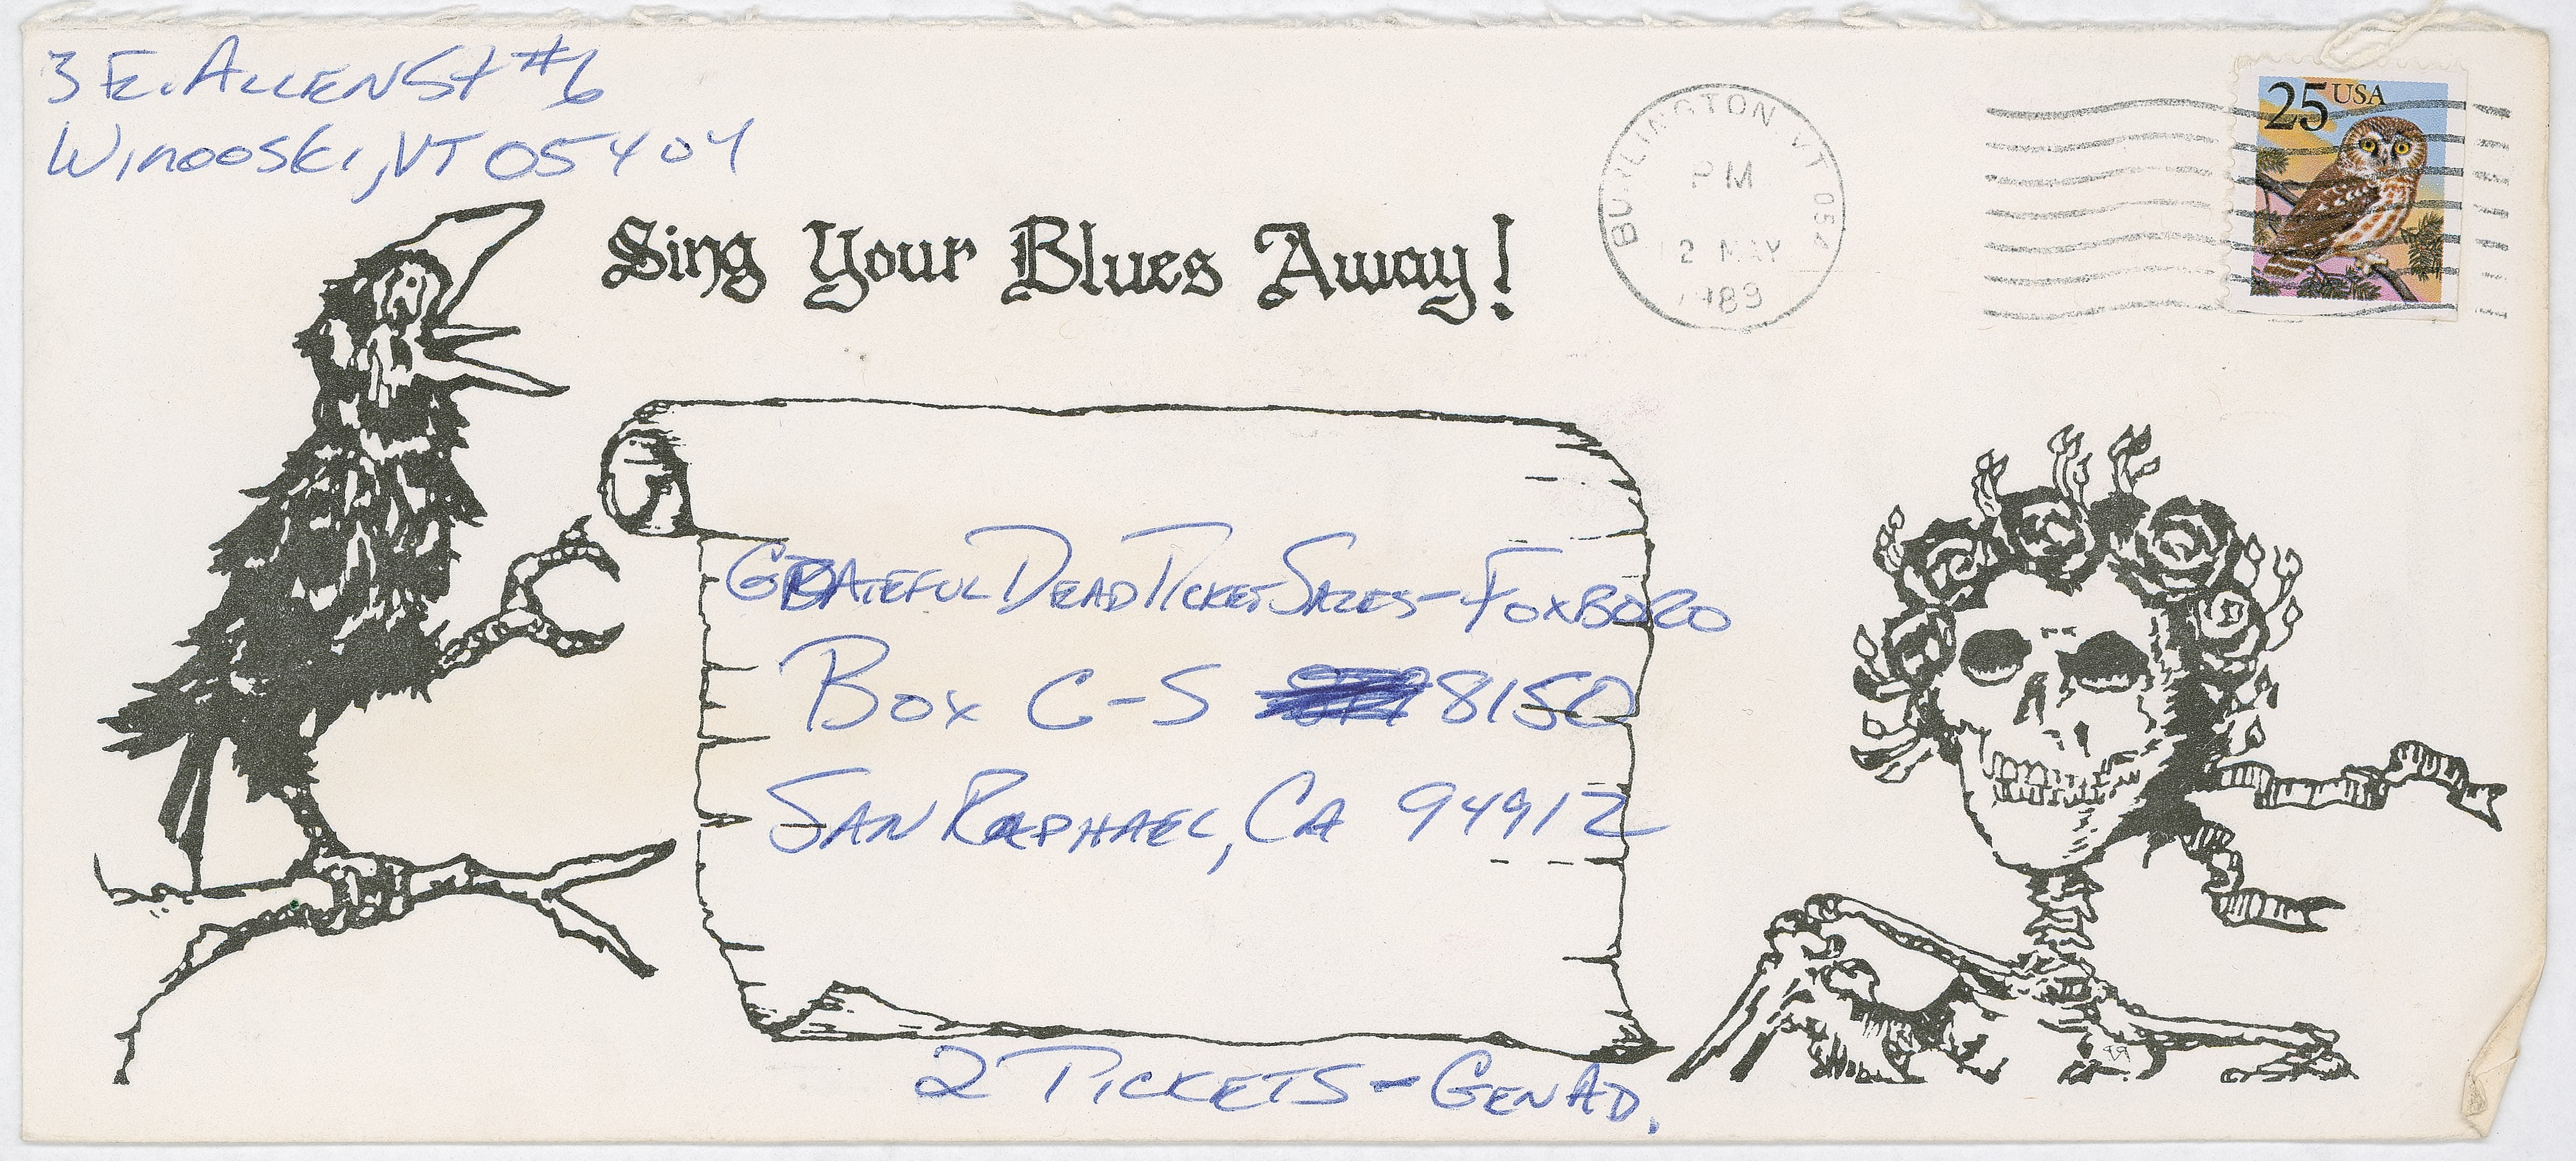 3 E. Allen St #6
Winooski, VT 05404
Sing Your Blues Away!
BURLINGTON, VT 054
PM
2 MAY
1989
25 USA
Grateful Dead Ticket Sales - Foxboro
Box C-S 8150
San Raphael, CA 94912
2 Tickets - Gen Ad.